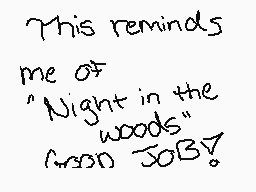 This reminds
me of
"Night in the
woods"
GOOD JOB!